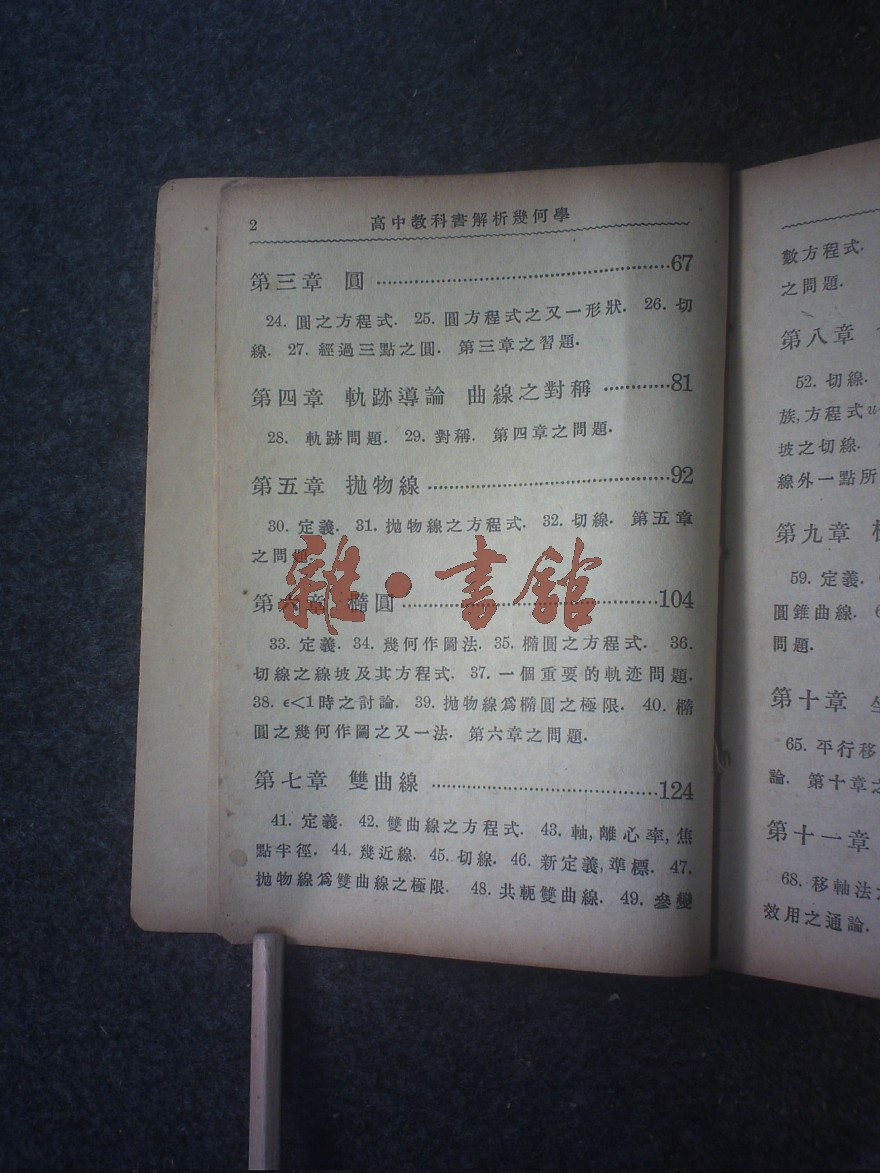 2 高中教科書解析幾何學
第三章 圓 ……………………………67
24. 圓之方程式. 25. 圓方程式之又一形狀. 26. 切
線. 27. 經過三點之圓. 第三章之習題.
第四章 軌跡導論 曲線之對稱 …………81
28. 軌跡問題. 29. 對稱. 第四章之問題.
第五章 拋物線 ……………………………92
30. 定義. 31. 拋物線之方程式. 32. 切線. 第五章
之問題.
第六章 橢圓 ……………………………104
33. 定義. 34. 幾何作圖法. 35. 橢圓之方程式. 36.
切線之線坡及其方程式. 37. 一個重要的軌迹問題.
38. ϵ<1時之討論. 39. 拋物線爲橢圓之極限. 40. 橢
圓之幾何作圖之又一法. 第六章之問題.
第七章 雙曲線 ……………………………124
41. 定義. 42. 雙曲線之方程式. 43. 軸,離心率,焦
點半徑. 44. 幾近線. 45. 切線. 46. 新定義,準標. 47.
拋物線爲雙曲線之極限. 48. 共軛雙曲線. 49. 參變
雜·書館
數方程式.
之問題.
第八章
52. 切線.
族,方程式u
坡之切線.
線外一點所
第九章
59. 定義.
圓錐曲線.
問題.
第十章
65. 平行移
論. 第十章之
第十一章
68. 移軸法
效用之通論.